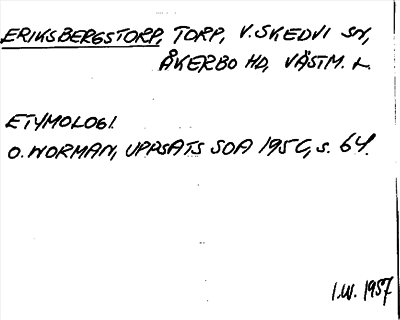 ERIKSBERGSTORP, TORP, V. SKEDVI SN,
ÅKERBO HD, VÄSTM. L.
ETYMOLOGI.
O. NORMAN, UPPSATS SOA 195C, s. 64.
I.W. 1957